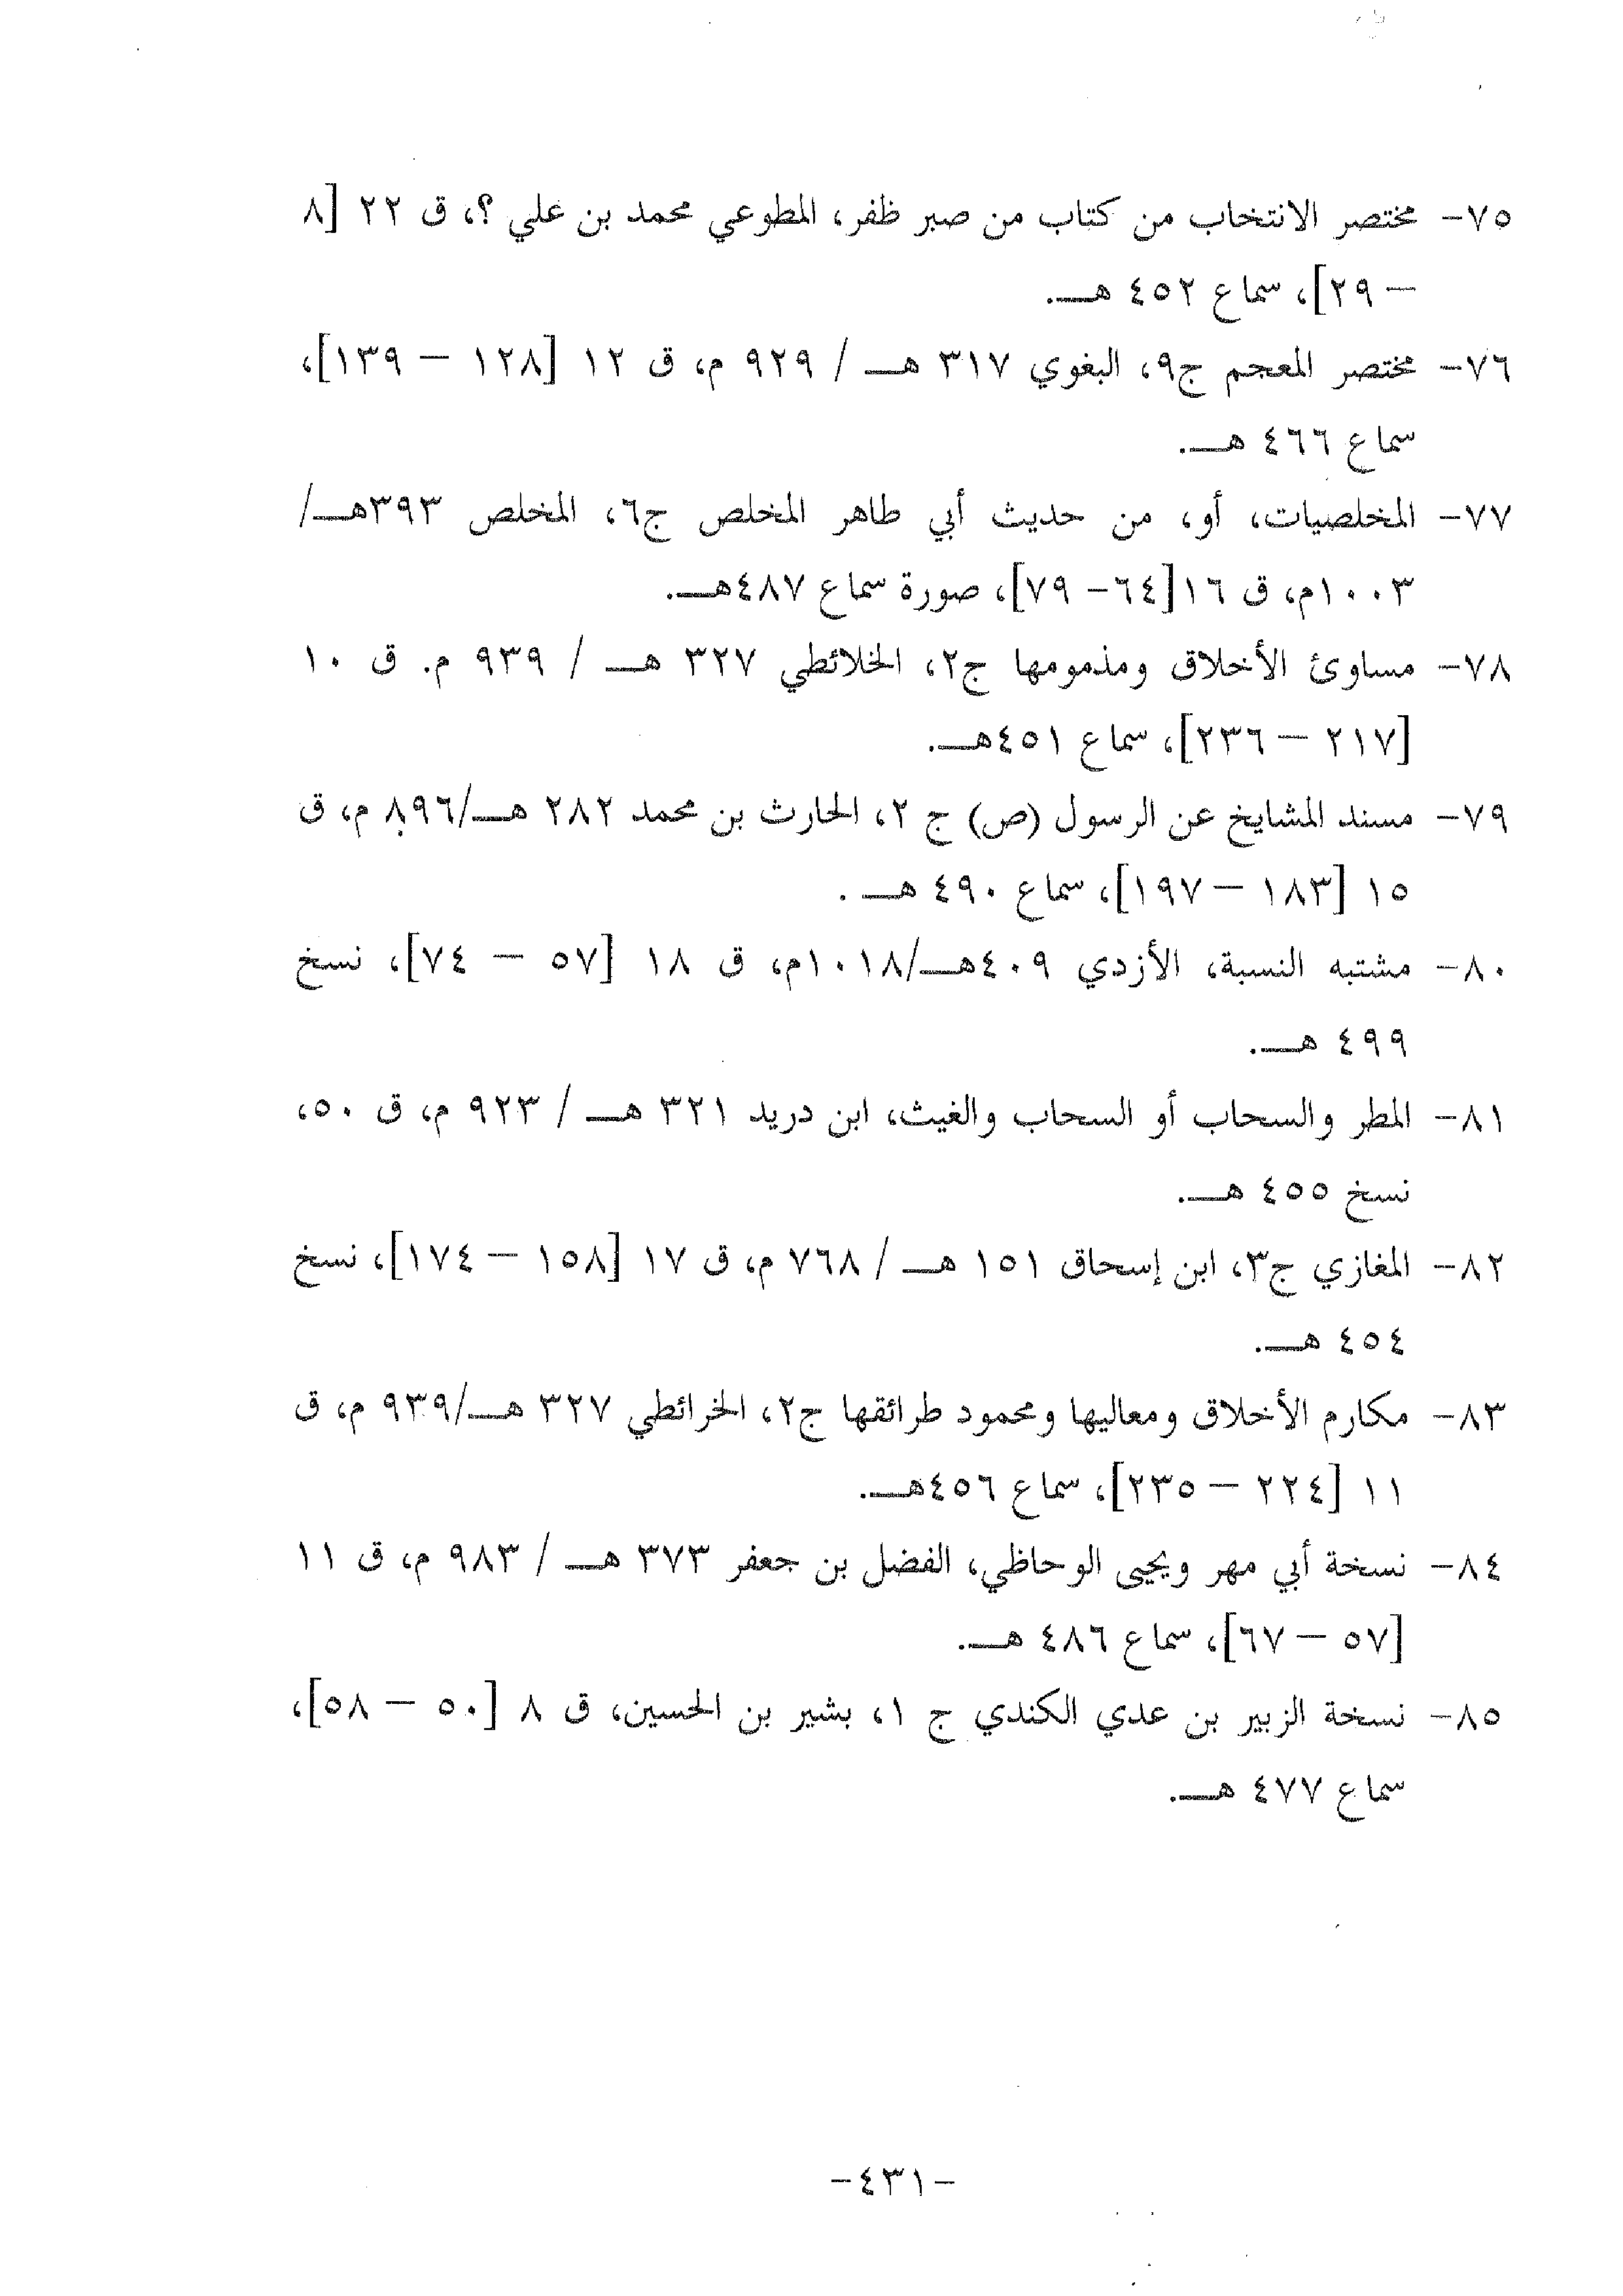 ٧٥- مختصر الانتخاب من كتاب من صبر ظفر، المطوعي محمد بن علي ؟، ق ٢٢ [٨
– ٢٩]، سماع ٤٥٢ هــ.
٧٦- مختصر المعجم ج٩، البغوي ٣١٧ هــ / ٩٢٩ م، ق ١٢ [١٢٨ – ١٣٩]،
سماع ٤٦٦ هــ.
٧٧- المخلصيات، أو، من حديث أبي طاهر المخلص ج٦، المخلص ٣٩٣هــ/
١٠٠٣م، ق ١٦[٦٤- ٧٩]، صورة سماع ٤٨٧هــ.
٧٨- مساوئ الأخلاق ومذمومها ج٢، الخلائطي ٣٢٧ هــ / ٩٣٩ م. ق ١٠
[٢١٧ – ٢٣٦]، سماع ٤٥١هــ.
٧٩- مسند المشايخ عن الرسول (ص) ج ٢، الحارث بن محمد ٢٨٢ هــ/٨٩٦ م، ق
١٥ [١٨٣ – ١٩٧]، سماع ٤٩٠ هــ .
٨٠- مشتبه النسبة، الأزدي ٤٠٩هــ/١٠١٨م، ق ١٨ [٥٧ – ٧٤]، نسخ
٤٩٩ هــ.
٨١- المطر والسحاب أو السحاب والغيث، ابن دريد ٣٢١ هــ / ٩٢٣ م، ق ٥٠،
نسخ ٤٥٥ هــ.
٨٢- المغازي ج٣، ابن إسحاق ١٥١ هــ / ٧٦٨ م، ق ١٧ [١٥٨ – ١٧٤]، نسخ
٤٥٤ هــ.
٨٣- مكارم الأخلاق ومعاليها ومحمود طرائقها ج٢، الخرائطي ٣٢٧ هــ/٩٣٩ م، ق
١١ [٢٢٤ – ٢٣٥]، سماع ٤٥٦هــ.
٨٤- نسخة أبي مهر ويحيى الوحاظي، الفضل بن جعفر ٣٧٣ هــ / ٩٨٣ م، ق ١١
[٥٧ – ٦٧]، سماع ٤٨٦ هــ.
٨٥- نسخة الزبير بن عدي الكندي ج ١، بشير بن الحسين، ق ٨ [٥٠ – ٥٨]،
سماع ٤٧٧ هــ.
-٤٣١-